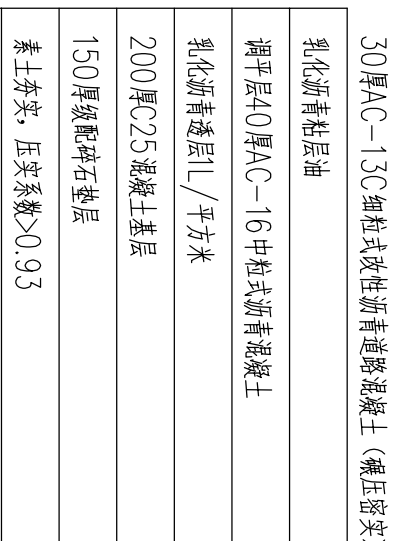 30厚AC-13C细粒式改性沥青道路混凝土（碾压密实
乳化沥青粘层油
调平层40厚AC-16中粒式沥青混凝土
乳化沥青透层1L/平方米
200厚C25混凝土基层
150厚级配碎石垫层
素土夯实，压实系数>0.93